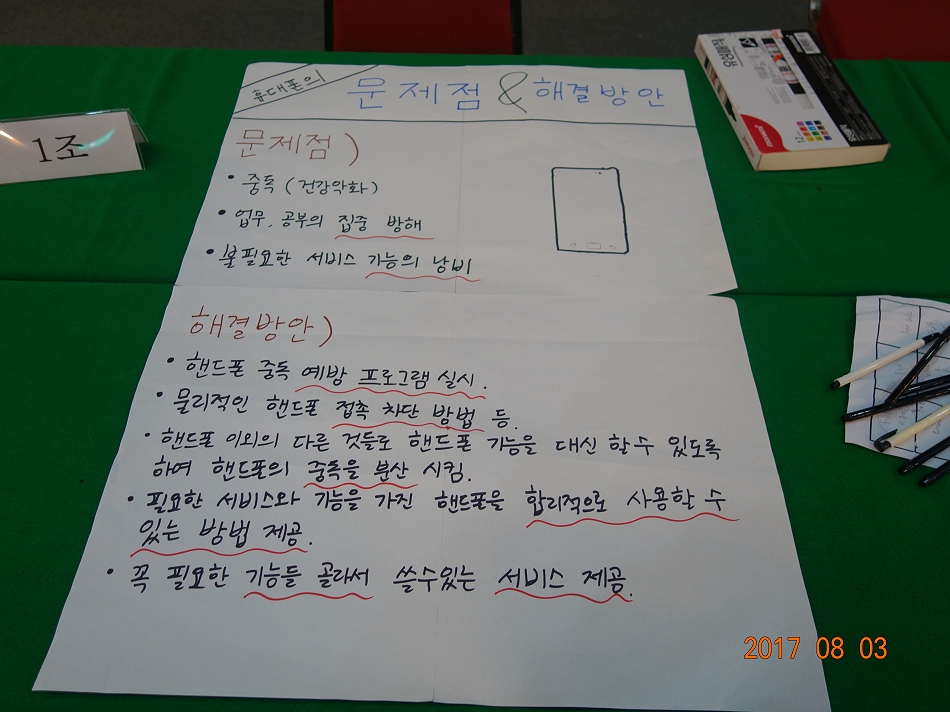 휴대폰의 문제점 & 해결방안
1조
문제점)
• 중독 (건강악화)
• 업무, 공부의 집중 방해
• 불필요한 서비스 기능의 낭비
해결방안)
• 핸드폰 중독 예방 프로그램 실시.
• 물리적인 핸드폰 접촉 차단 방법 등.
• 핸드폰 이외의 다른 것들로 핸드폰 기능을 대신 할 수 있도록
하여 핸드폰의 중독을 분산 시킴.
• 필요한 서비스와 기능을 가진 핸드폰을 합리적으로 사용할 수
있는 방법 제공.
• 꼭 필요한 기능들 골라서 쓸수있는 서비스 제공.
2017 08 03